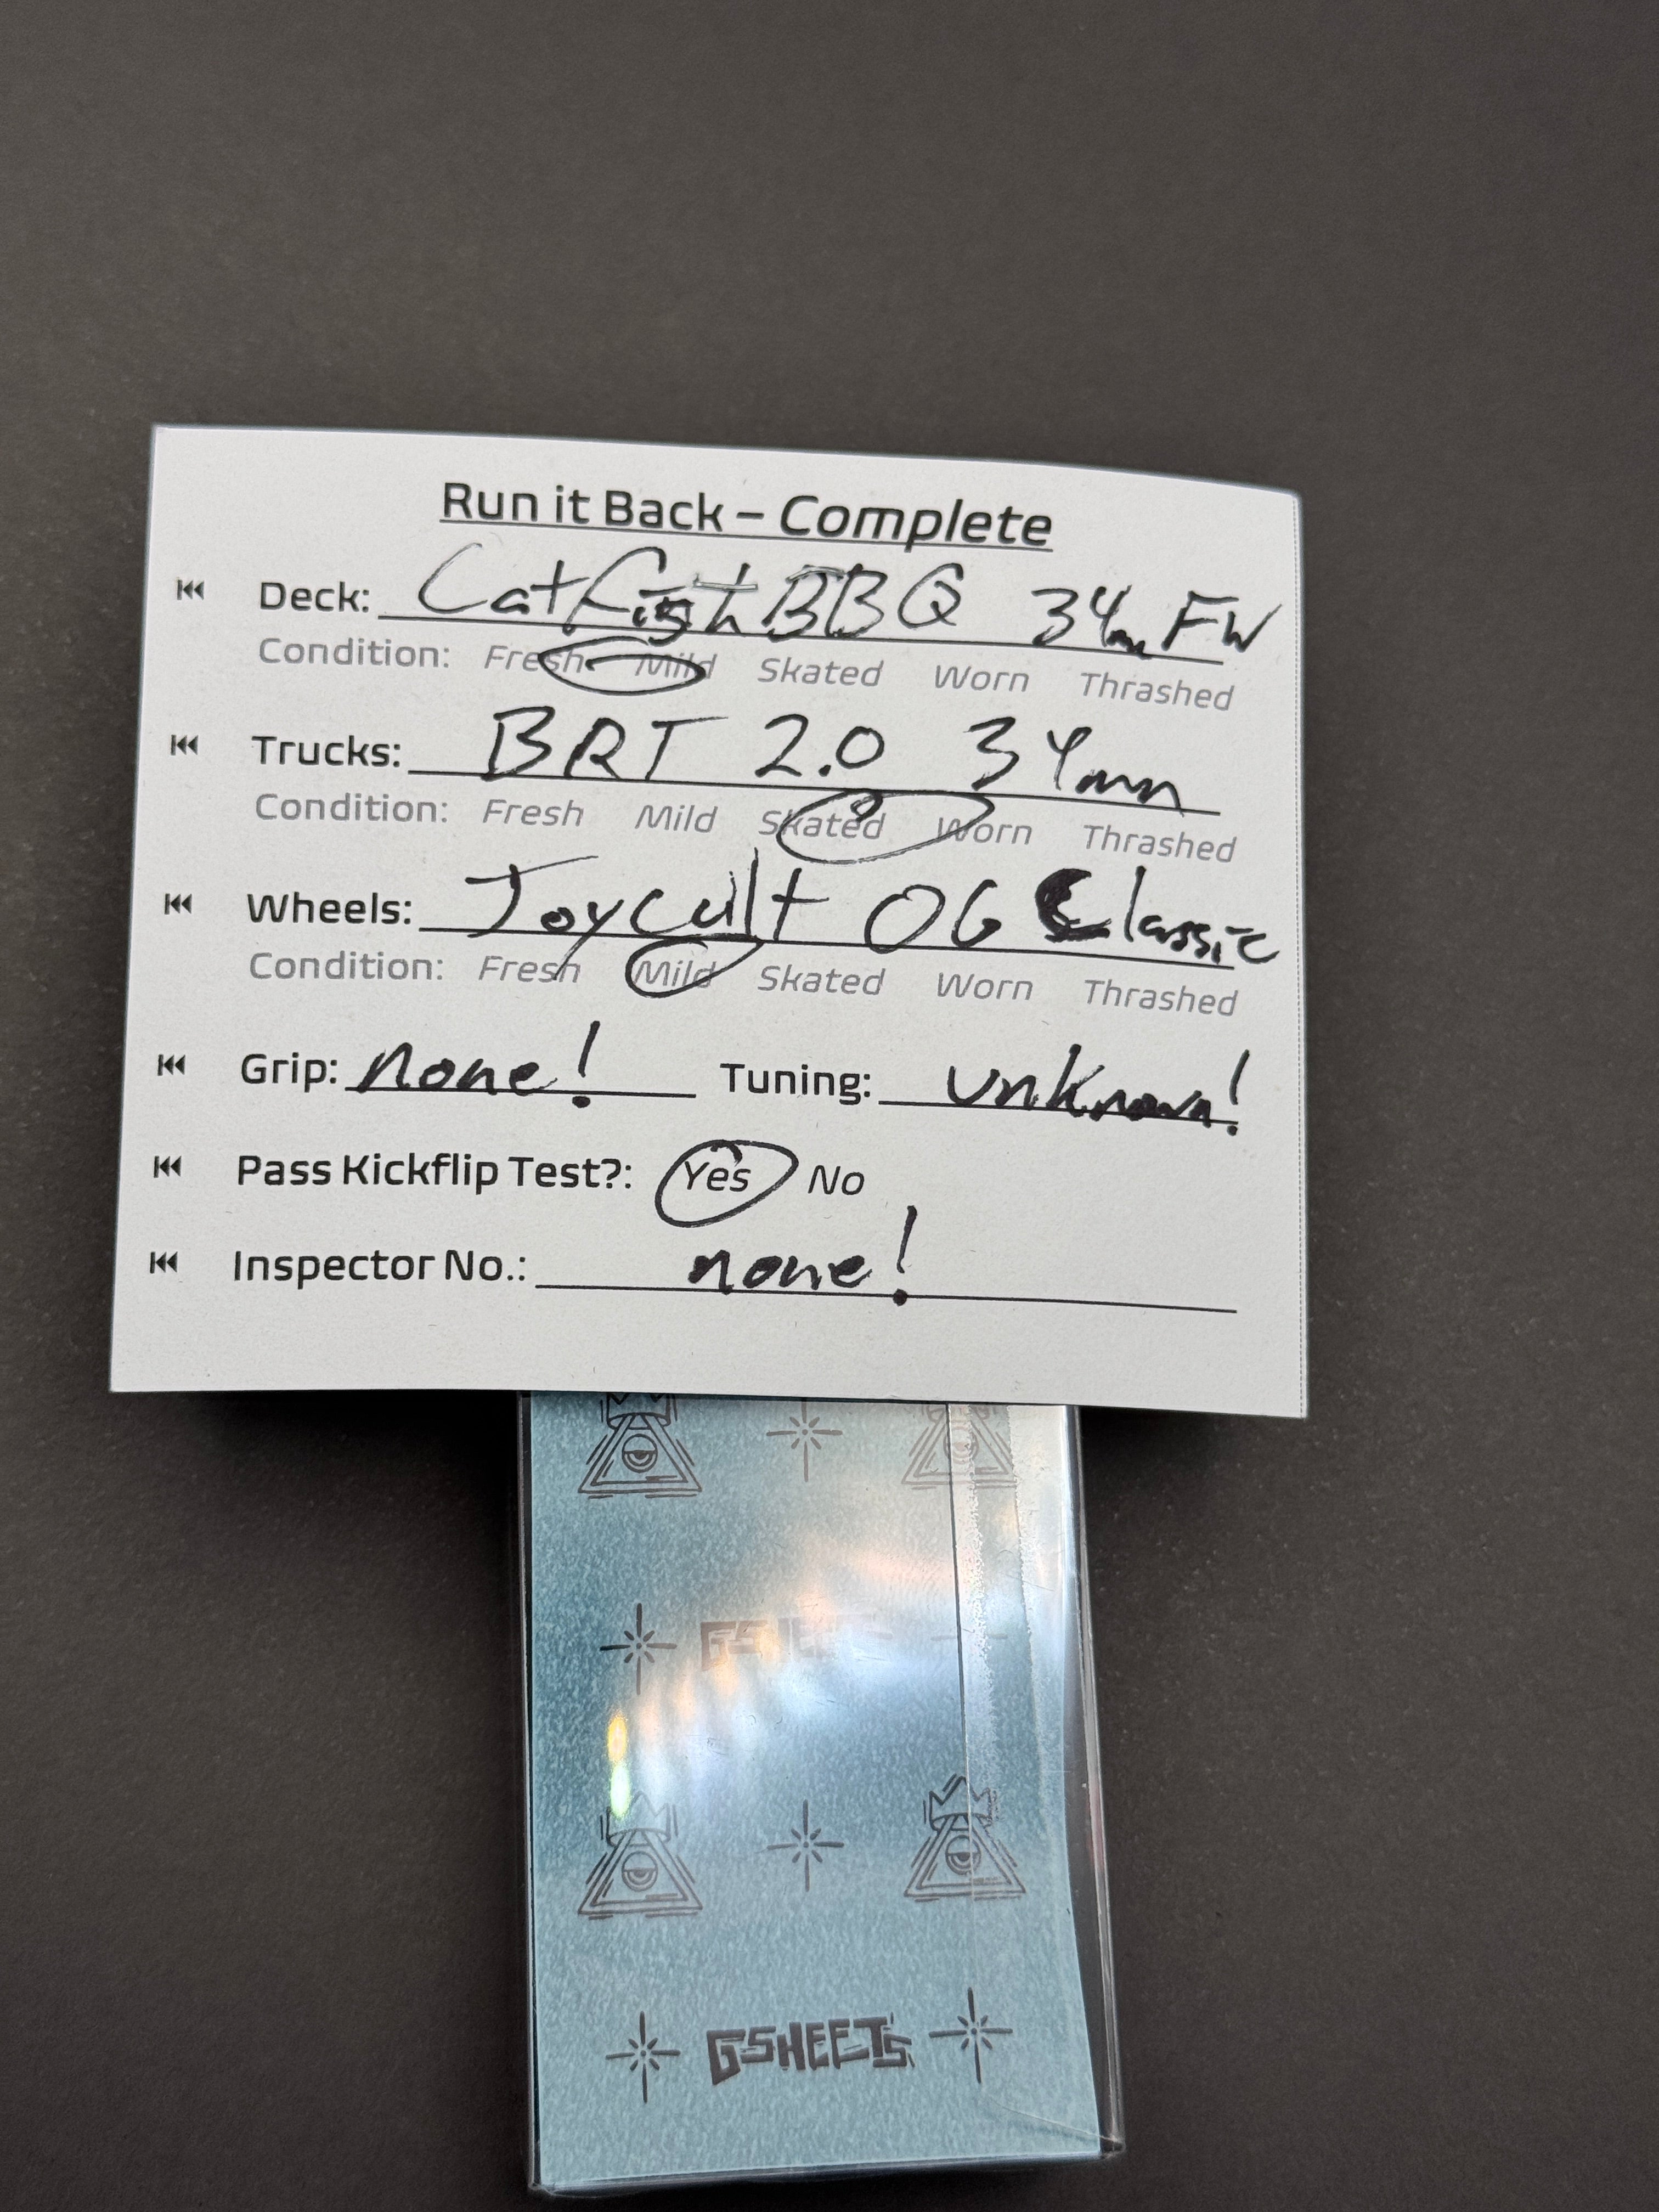 Run it Back – Complete
Deck: Catfish BBQ 34mm FW
Condition: Fresh Mild Skated Worn Thrashed
Trucks: BRT 2.0 34mm
Condition: Fresh Mild Skated Worn Thrashed
Wheels: Joycult OG Classic
Condition: Fresh Mild Skated Worn Thrashed
Grip: none! Tuning: unknown!
Pass Kickflip Test?: Yes No
Inspector No.: none!
GSHEETS
GSHEETS